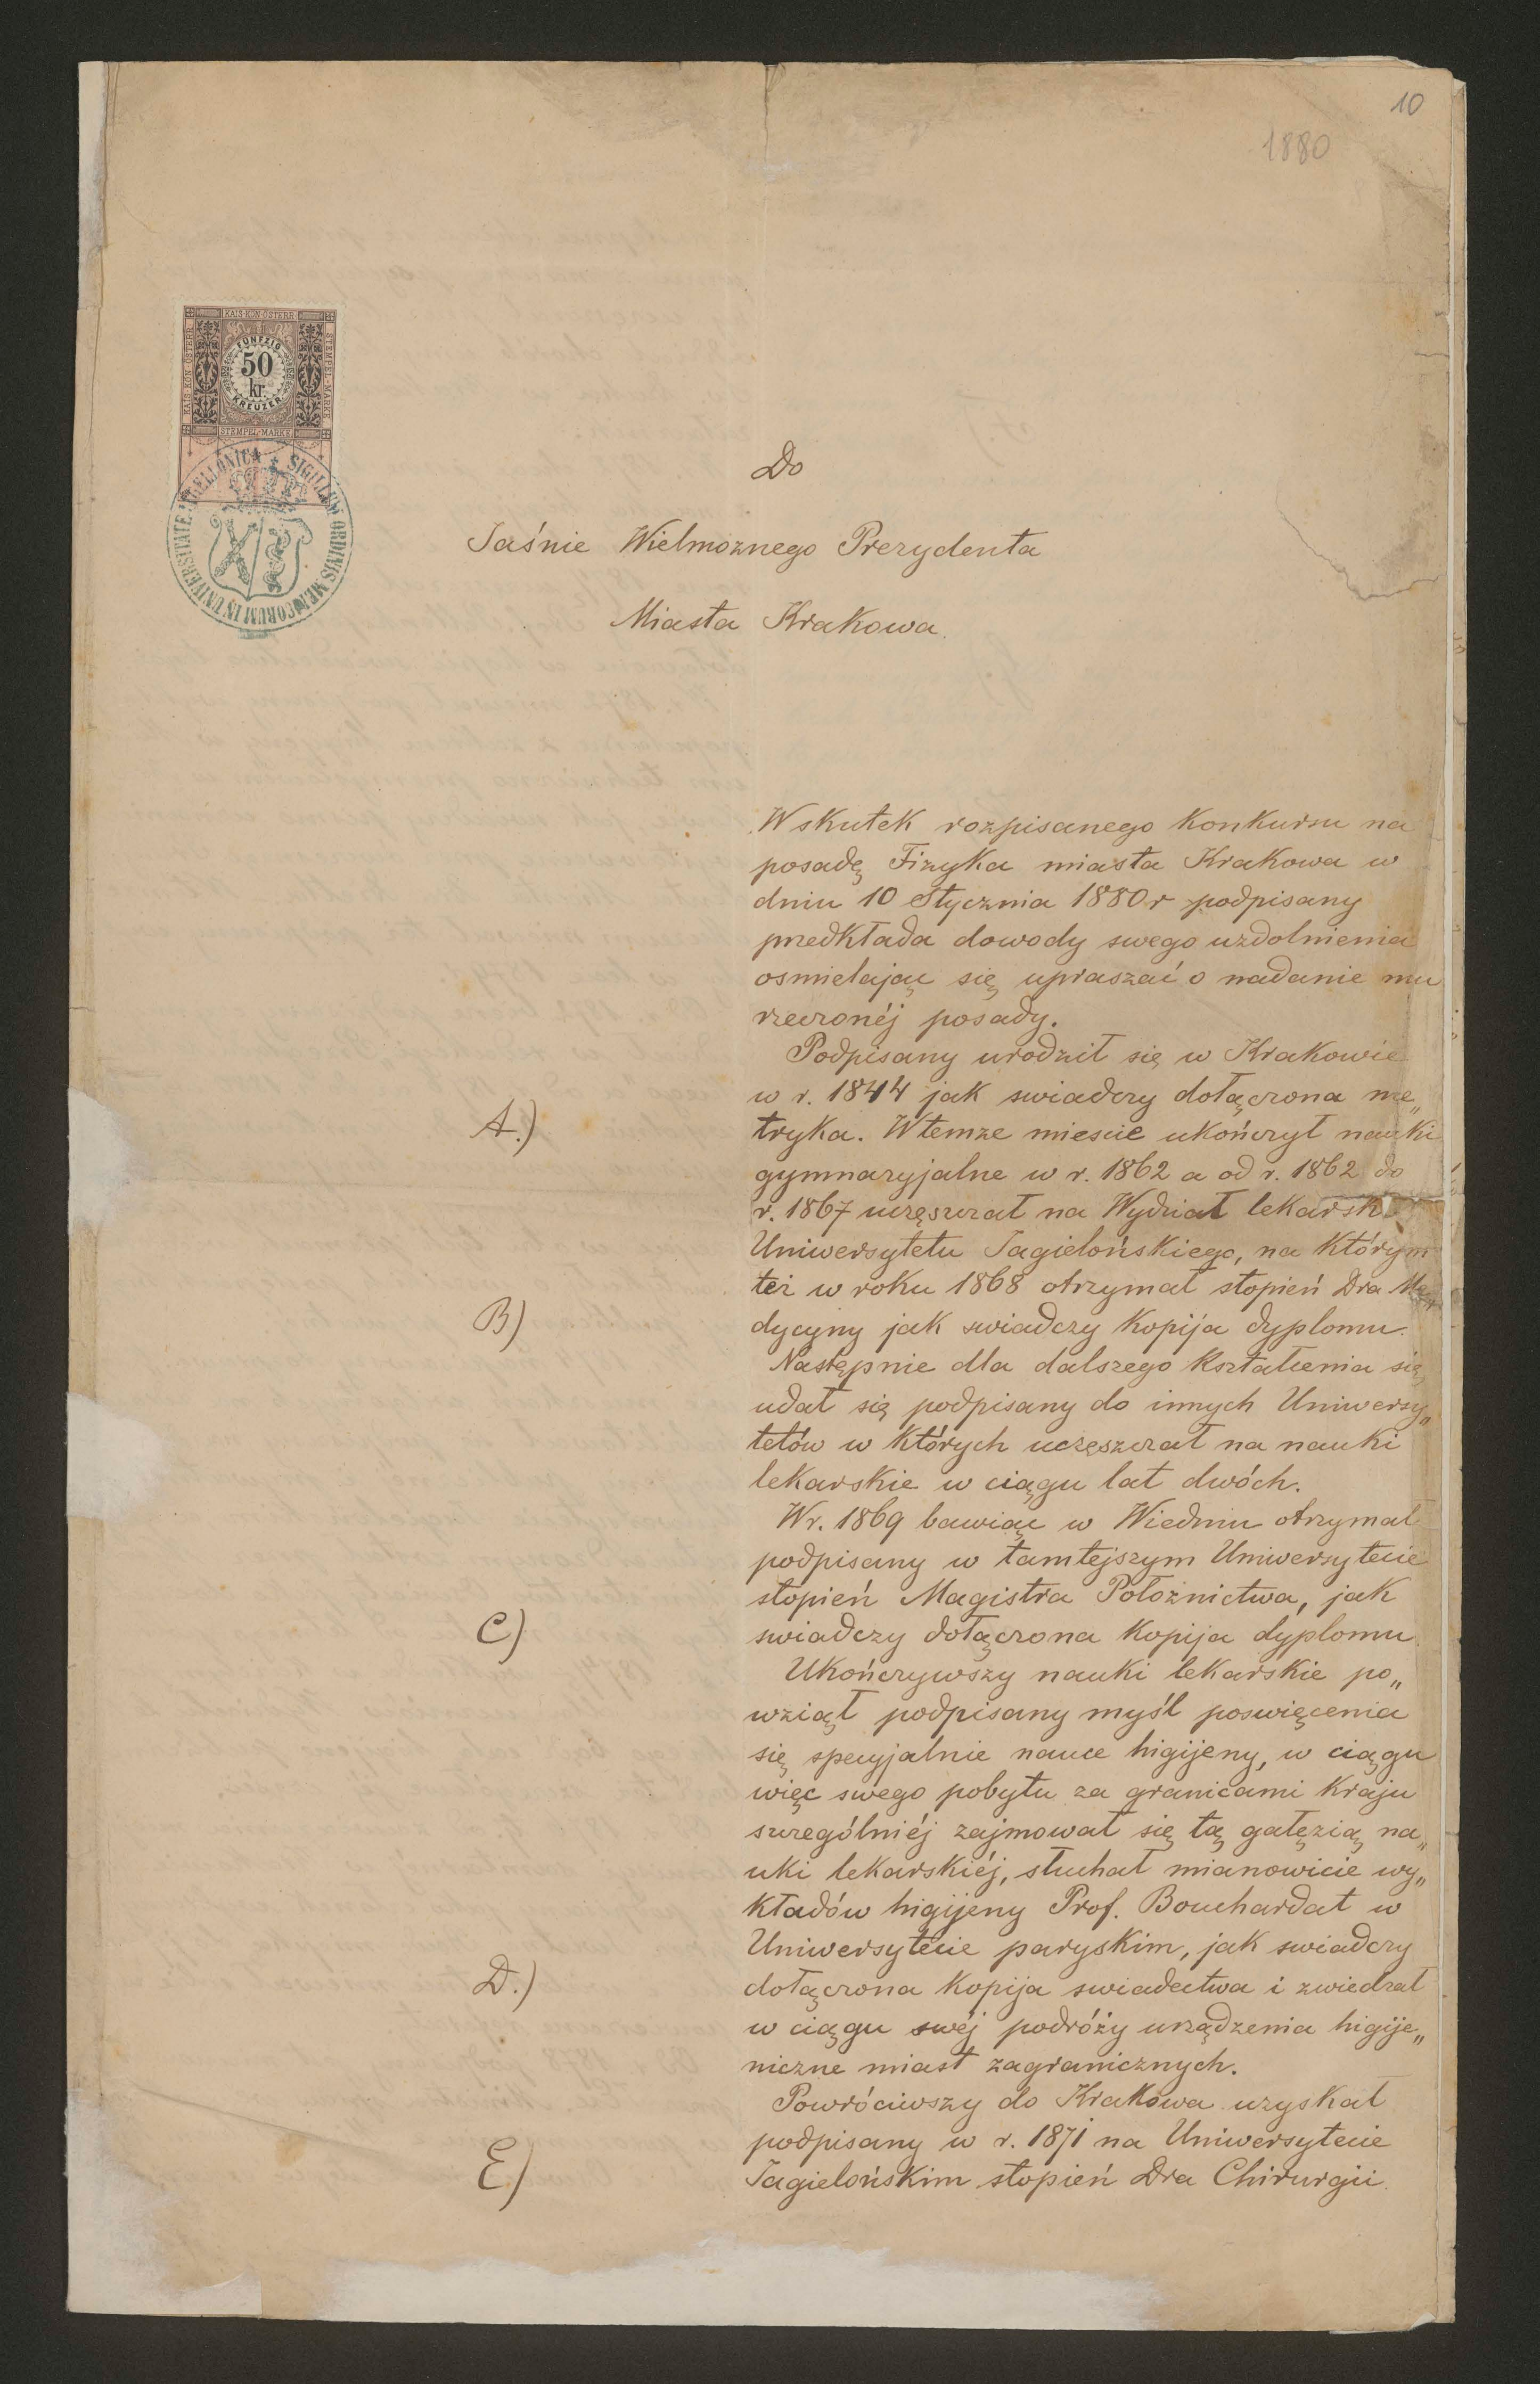 10
1880
KAIS. KÖN. ÖSTERR.
KAIS. KÖN. ÖSTERR.
STEMPEL-MARKE
FÜNFZIG
50
kr.
KREUZER
STEMPEL-MARKE
SIGILLUM ORDINIS MEDICORUM IN UNIVERSITATE JAGELLONICA
Do
Jaśnie Wielmoznego Prezydenta
Miasta Krakowa.
Wskutek rozpisanego Konkursu na
posadę Fizyka miasta Krakowa w
dniu 10 Stycznia 1880 r podpisany
przedkłada dowody swego uzdolnienia
osmielając się upraszać o nadanie mu
rzeczonéj posady.
Podpisany urodził się w Krakowie
w r. 1844 jak swiadczy dołączona me„
A.)
tryka. W temze miescie ukończył nauki
gymnazyjalne w r. 1862 a od r. 1862 do
r. 1867 uczęszczał na Wydział lekarski
Uniwersytetu Jagielońskiego, na którym
też w roku 1868 otrzymał stopień Dra Me„
B)
dycyny jak swiadczy Kopija dyplomu.
Następnie dla dalszego Kształcenia się
udał się podpisany do innych Uniwersy„
tetów w których uczęszczał na nauki
lekarskie w ciągu lat dwóch.
W r. 1869 bawiąc w Wiedniu otrzymał
podpisany w tamtejszym Uniwersytecie
stopień Magistra Położnictwa, jak
C)
swiadczy dołączona Kopija dyplomu.
Ukończywszy nauki lekarskie po„
wziął podpisany myśl poswięcenia
się specyjalnie nauce higijeny, w ciągu
więc swego pobytu za granicami Kraju
szczególniéj zajmował się tą gałęzią na„
uki lekarskiéj, słuchał mianowicie wy„
kładów higijeny Prof. Bouchardat w
Uniwersytecie paryskim, jak swiadczy
D.)
dołączona Kopija swiadectwa i zwiedzał
w ciągu swéj podróży urządzenia higije„
niczne miast zagranicznych.
Powróciwszy do Krakowa uzyskał
podpisany w r. 1871 na Uniwersytecie
E)
Jagielońskim stopień Dra Chirurgii.